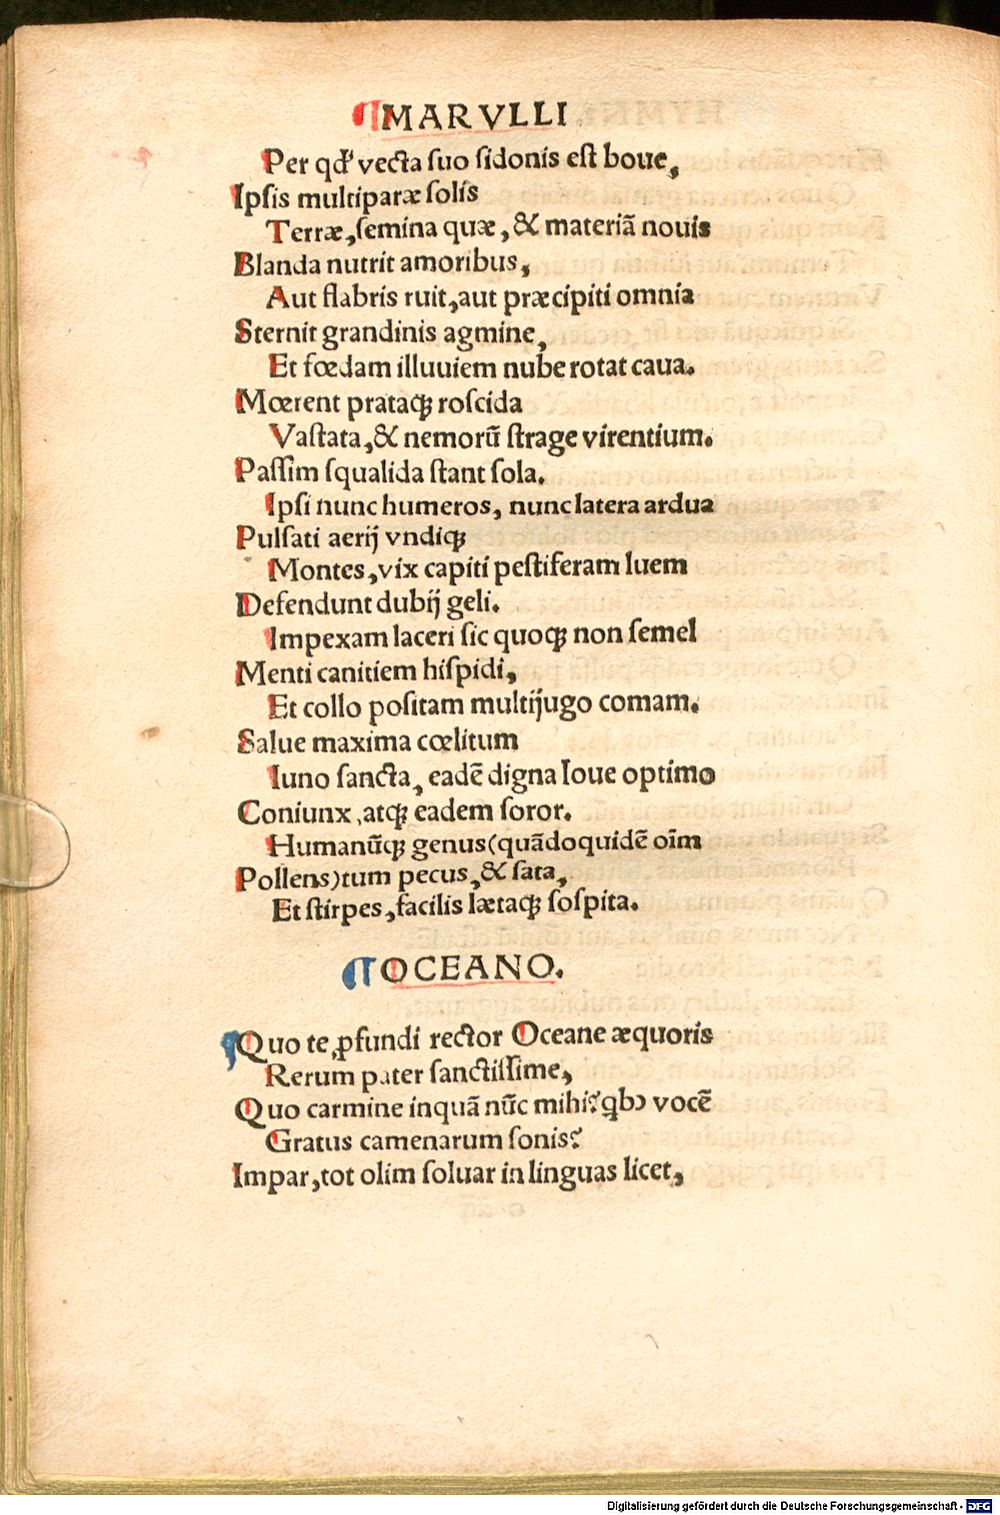 ¶MARVLLI.
Per qđ vecta suo sidonis est boue,
Ipsis multiparæ solis
Terræ, semina quæ, & materiã nouis
Blanda nutrit amoribus,
Aut flabris ruit, aut præcipiti omnia
Sternit grandinis agmine,
Et fœdam illuuiem nube rotat caua.
Mœrent prataqꝫ roscida
Vastata, & nemorũ strage virentium.
Passim squalida stant sola.
Ipsi nunc humeros, nunc latera ardua
Pulsati aerij vndiqꝫ
Montes, vix capiti pestiferam luem
Defendunt dubij geli.
Impexam laceri sic quoqꝫ non semel
Menti canitiem hispidi,
Et collo positam multijugo comam.
Salue maxima cœlitum
Iuno sancta, eadẽ digna Ioue optimo
Coniunx, atqꝫ eadem soror.
Humanũqꝫ genus (quãdoquidẽ oĩm
Pollens) tum pecus, & sata,
Et stirpes, facilis lætaqꝫ sospita.
¶OCEANO.
¶Quo te ꝓfundi rector Oceane æquoris
Rerum pater sanctissime,
Quo carmine inquã nũc mihi? qbꝰ vocẽ
Gratus camenarum sonis?
Impar, tot olim soluar in linguas licet,
Digitalisierung gefördert durch die Deutsche Forschungsgemeinschaft - DFG